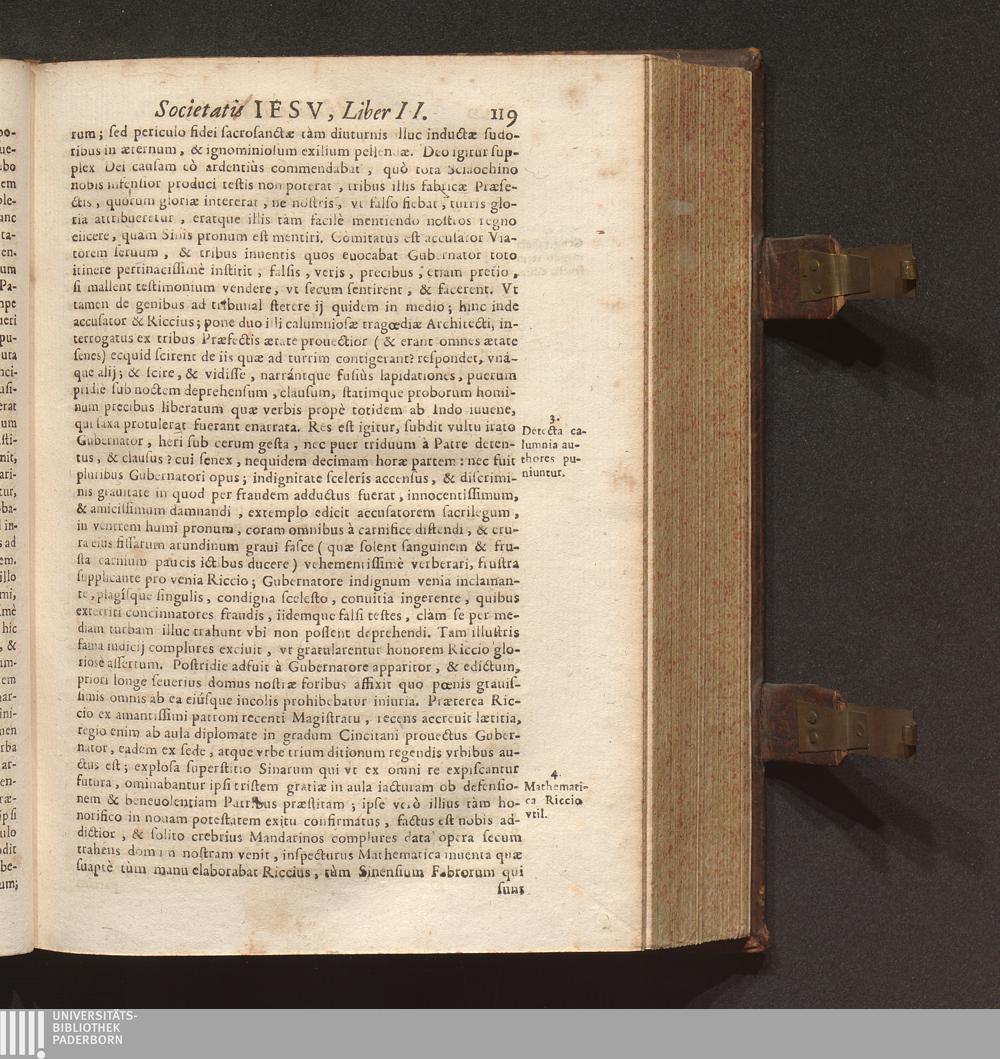 Societatis IESV, Liber II. 119
rum; sed periculo fidei sacrosanctæ tàm diuturnis illuc inductæ sudo-
ribus in æternum, & ignominiosum exilium pellendæ. Deo igitur sup-
plex Dei causam eò ardentiùs commendabat, quò tota Sciaochino
nobis infensior produci testis non poterat, tribus illis fabricæ Præfe-
ctis, quorum gloriæ intererat, ne nostris, vt falso fiebat, turris glo-
ria attribueretur, eratque illis tàm facilè mentiendo nostros regno
eiicere, quam Sinis pronum est mentiri. Comitatus est accusator Via-
torem seruum, & tribus inuentis quos euocabat Gubernator toto
itinere pertinacissimè institit, falsis, veris, precibus, etiam pretio,
si mallent testimonium vendere, vt secum sentirent, & facerent. Vt
tamen de genibus ad tribunal stetere ij quidem in medio; hinc inde
accusator & Riccius; pone duo illi calumniosæ tragœdiæ Architecti, in-
terrogatus ex tribus Præfectis ætate prouectior (& erant omnes ætate
senes) ecquid scirent de iis quæ ad turrim contigerant? respondet, vná-
que alij; & scire, & vidisse, narrántque fusiùs lapidationes, puerum
pridie sub noctem deprehensum, clausum, statimque proborum homi-
num precibus liberatum quæ verbis propè totidem ab Indo iuuene,
qui saxa protulerat fuerant enarrata. Res est igitur, subdit vultu irato
Gubernator, heri sub cerum gesta, nec puer triduum à Patre deten-
tus, & clausus? cui senex, nequidem decimam horæ partem: nec fuit
pluribus Gubernatori opus; indignitate sceleris accensus, & discrimi-
nis grauitate in quod per fraudem adductus fuerat, innocentissimum,
& amicissimum damnandi, extemplo edicit accusatorem sacrilegum,
in ventrem humi pronum, coram omnibus à carnifice distendi, & cru-
ra eius fissarum arundinum graui fasce (quæ solent sanguinem & fru-
sta carnium paucis ictibus ducere) vehementissimè verberari, frustra
supplicante pro venia Riccio; Gubernatore indignum venia inclaman-
te, plagísque singulis, condigna scelesto, conuitia ingerente, quibus
exterriti concinnatores fraudis, iidemque falsi testes, clàm se per me-
diam turbam illuc trahunt vbi non possent deprehendi. Tam illustris
fama iudicij complures exciuit, vt gratularentur honorem Riccio glo-
riosè assertum. Postridie adfuit à Gubernatore apparitor, & edictum,
priori longe seuerius domus nostræ foribus affixit quo pœnis grauis-
simis omnis ab ea eiúsque incolis prohibebatur iniuria. Præterea Ric-
cio ex amantissimi patroni recenti Magistratu, recens accreuit lætitia,
regio enim ab aula diplomate in gradum Cincitani prouectus Guber-
nator, eadem ex sede, atque vrbe trium ditionum regendis vrbibus au-
ctus est; explosa superstitio Sinarum qui vt ex omni re expiscantur
futura, ominabantur ipsi tristem gratiæ in aula iacturam ob defensio-
nem & beneuolentiam Patribus præstitam; ipse verò illius tàm ho-
norifico in nouam potestatem exitu confirmatus, factus est nobis ad-
dictior, & solito crebrius Mandarinos complures data opera secum
trahens domum nostram venit, inspecturus Mathematica inuenta quæ
suaptè tùm manu elaborabat Riccius, tùm Sinensium Fabrorum qui
sunt
3.
Detecta ca-
lumnia au-
thores pu-
niuntur.
4.
Mathemati-
ca Riccio
vtil.
UNIVERSITÄTS-
BIBLIOTHEK
PADERBORN